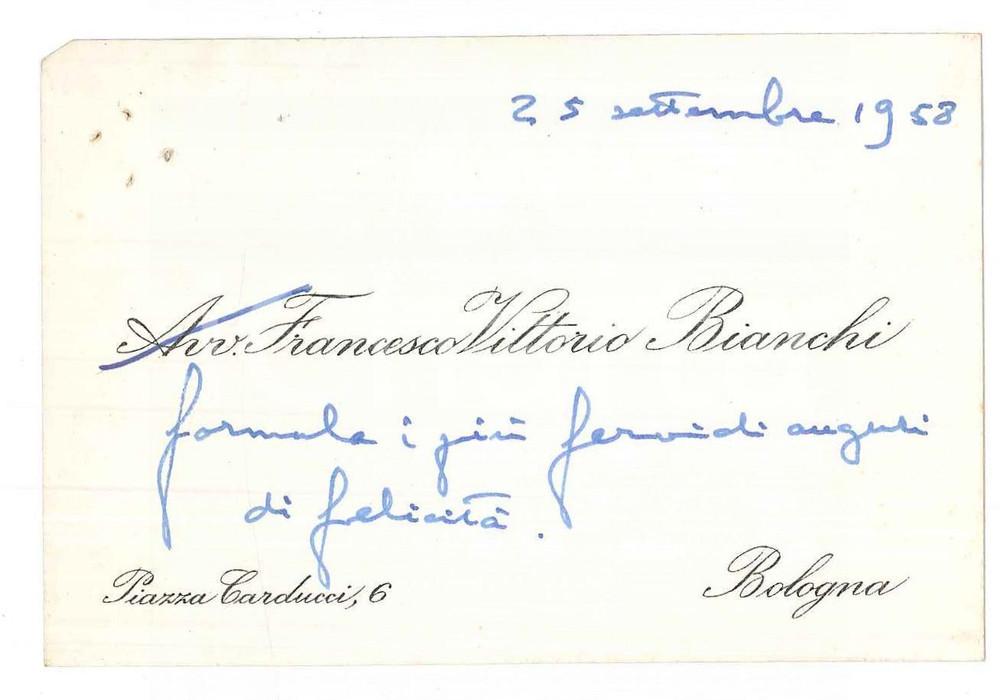 25 settembre 1958
Avv. Francesco Vittorio Bianchi
formula i più fervidi auguri
di felicità.
Piazza Carducci, 6
Bologna